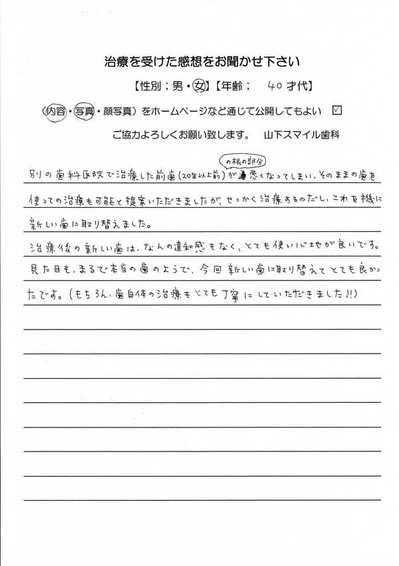 治療を受けた感想をお聞かせ下さい
【性別：男・女】【年齢： 40才代】
（内容・写真・顔写真）をホームページなど通じて公開してもよい ☑
ご協力よろしくお願い致します。 山下スマイル歯科
の根の部分
別の歯科医院で治療した前歯(20年以上前)が悪くなってしまい、そのままの歯を
使っての治療も可能と提案いただきましたが、せっかく治療するのだし、これを機に
新しい歯に取り替えました。
治療後の新しい歯は、なんの違和感もなく、とても使い心地が良いです。
見た目も、まるで本当の歯のようで、今回新しい歯に取り替えてとても良かっ
たです。(もちろん、歯自体の治療もとても丁寧にしていただきました!!)